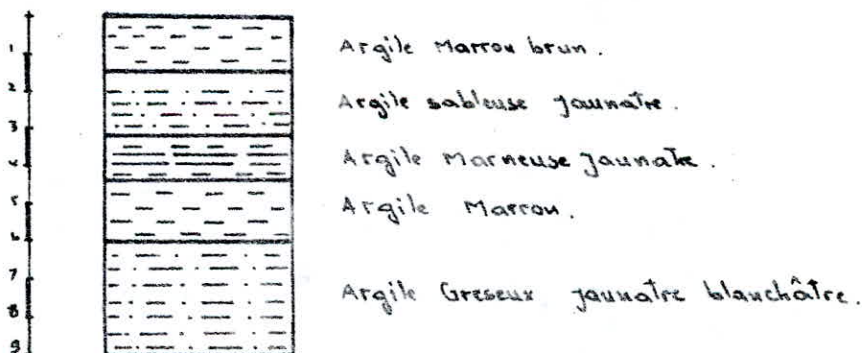 1
Argile Marron brun.
2
Argile sableuse jaunatre.
3
4
Argile Marneuse jaunatre.
5
Argile Marron.
6
7
Argile Greseux jaunatre blanchâtre.
8
9